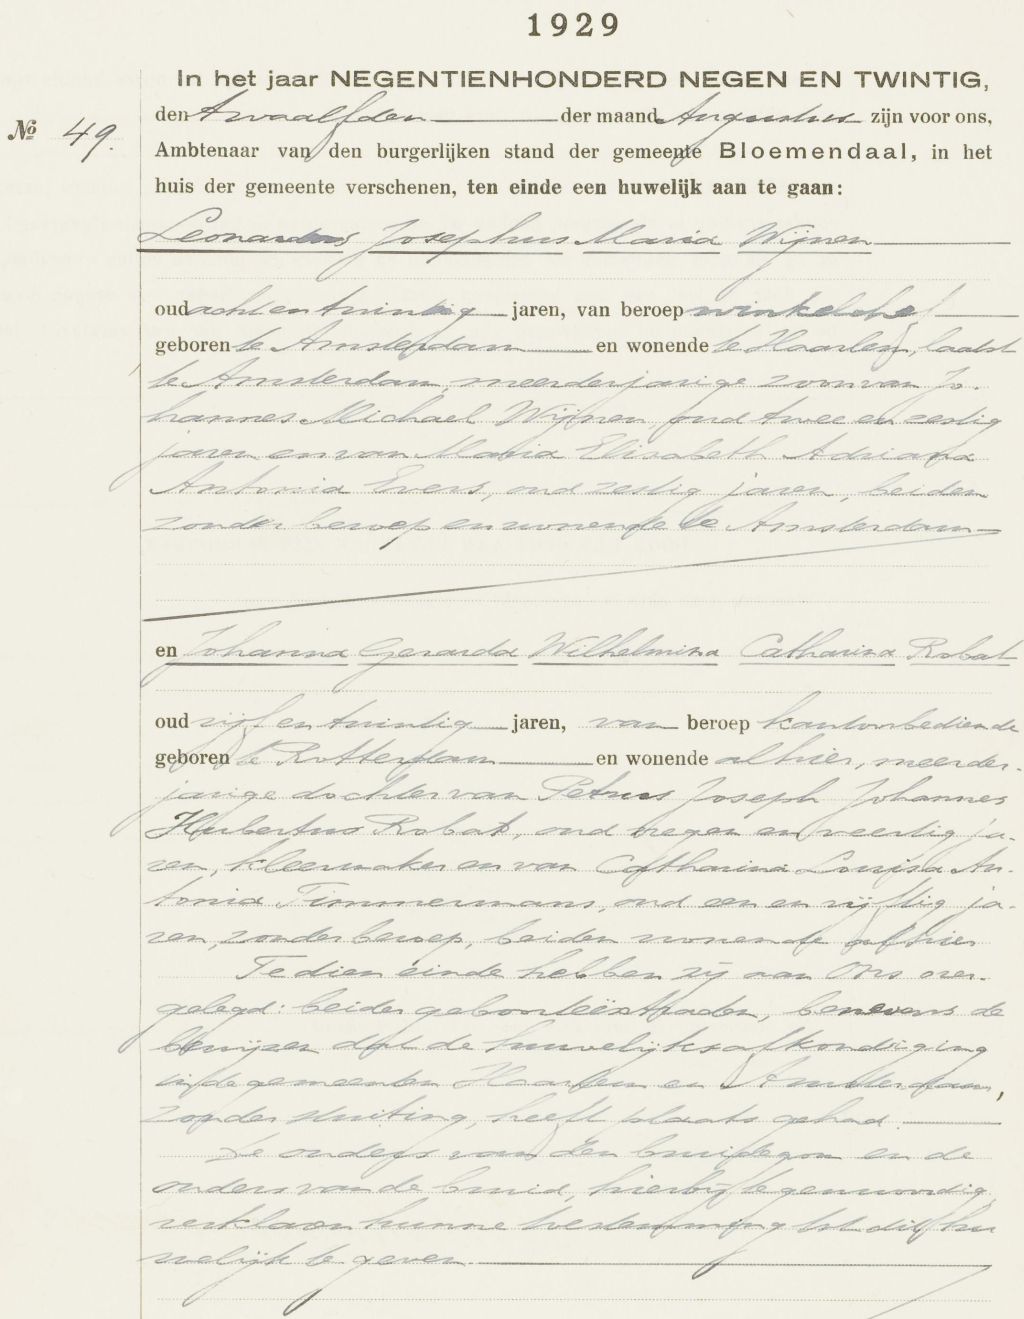 1929
In het jaar NEGENTIENHONDERD NEGEN EN TWINTIG,
den twaalfden der maand Augustus zijn voor ons,
Nº 49.
Ambtenaar van den burgerlijken stand der gemeente Bloemendaal, in het
huis der gemeente verschenen, ten einde een huwelijk aan te gaan:
Leonardus Josephus Maria Wijnen
oud acht en twintig jaren, van beroep winkelchef
geboren te Amsterdam en wonende te Haarlem, laatst
te Amsterdam, meerderjarige zoon van Jo-
hannes Michael Wijnen, oud twee en zestig
jaren en van Maria Elisabeth Adriana
Antonia Evers, oud zestig jaren, beiden
zonder beroep en wonende te Amsterdam
en Johanna Gerarda Wilhelmina Catharina Robat
oud vijf en twintig jaren, van beroep kantoorbediende
geboren te Rotterdam en wonende alhier, meerder-
jarige dochter van Petrus Joseph Johannes
Hubertus Robat, oud negen en veertig ja-
ren, kleermaker en van Catharina Louisa An-
tonia Timmermans, oud een en vijftig ja-
ren, zonder beroep, beiden wonende alhier
Te dien einde hebben zij aan Ons over-
gelegd: beider geboorteëxtracten, benevens de
bewijzen dat de huwelijksafkondiging
in de gemeenten Haarlem en Amsterdam,
zonder stuiting, heeft plaats gehad.
De ouders van den bruidegom en de
ouders van de bruid, hierbij tegenwoordig,
verklaren hunne toestemming tot dit hu
welijk te geven.